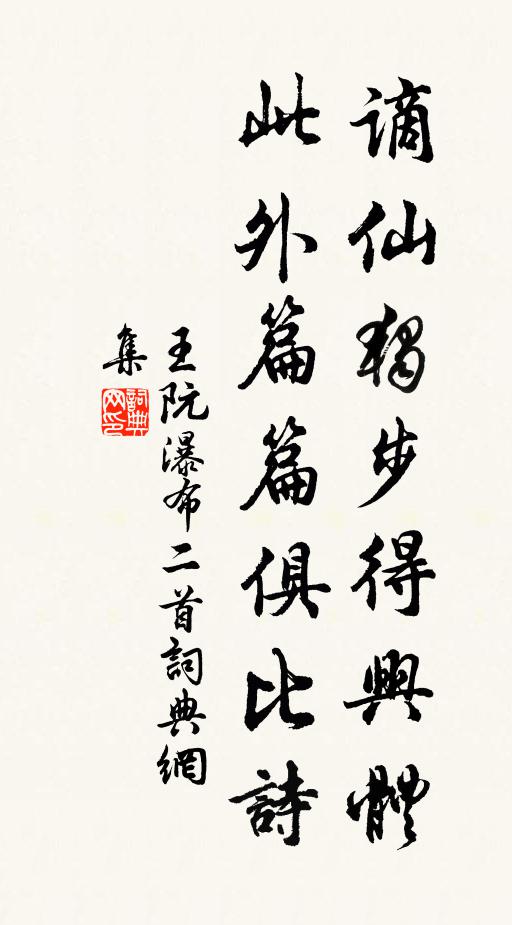 謫仙獨步得興體
此外篇篇俱比詩
王阮瀑布二首詞典網
集
詞典网印